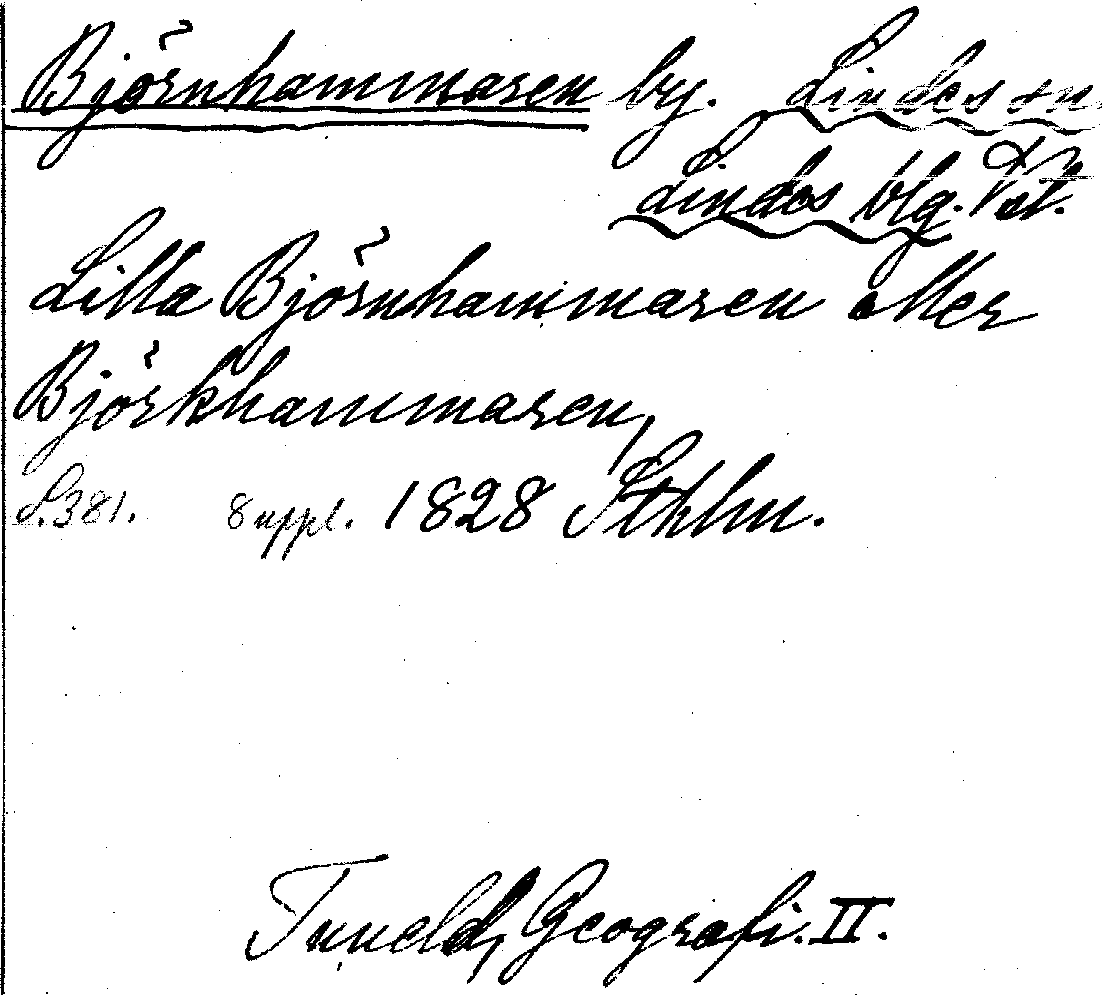 Björnhammaren by. Lindes sn.
Lindes blg. Vstl.
Lilla Björnhammaren eller
Björkhammaren,
S. 381. 8 uppl. 1828 Sthlm.
Tuneld, Geografi. II.